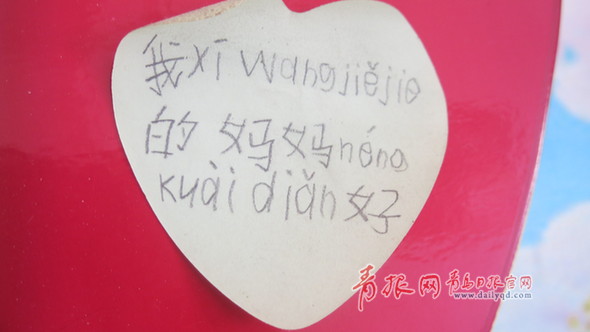 我xī wangjiějie
的 妈妈néng
kuài diǎn 好
青报网 青岛日报官网
www.dailyqd.com